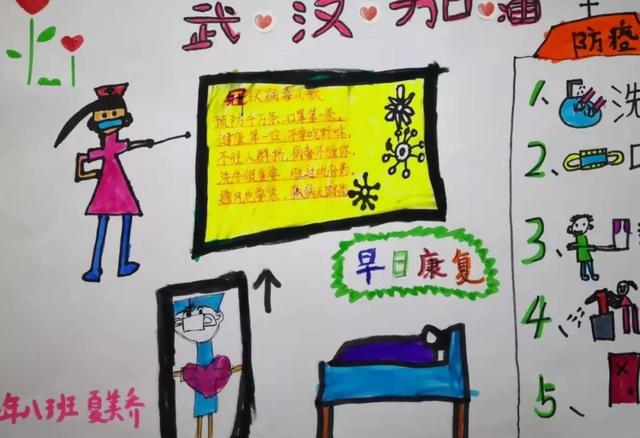 武汉加油
防疫
冠状病毒儿歌
预防千万条，口罩第一条。
健康第一位，不要吃野味。
不往人群挤，病毒不缠你。
洗手很重要，
通风也要紧，
早日康复
1、洗
2、口
3、
4、
5、
年八班 夏美乔